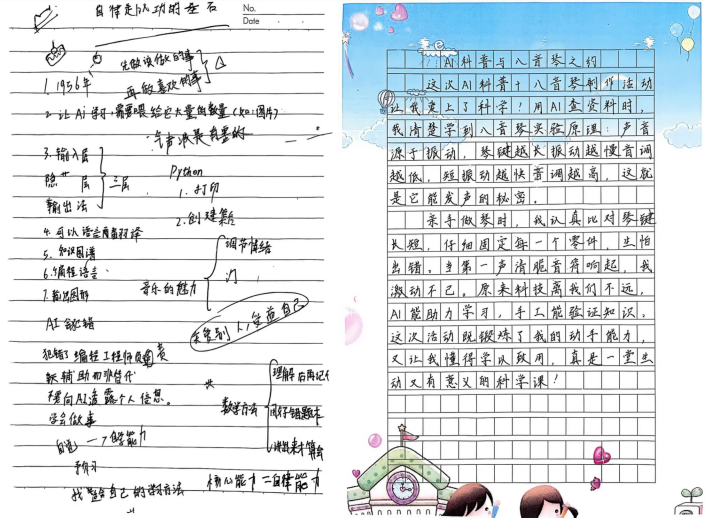 自律是成功的基石
No.
Date
先做该做的事
再做喜欢的事
1. 1956年
2. 让Ai学习需要喂给它大量的数量(如:图片)
3. 输入层
隐 层
输出法
三层
Python
1. 打印
2. 创建集合
4. 可以语言翻译
5. 知识图谱
6. 编程语言
7.
调节情绪
音乐的魅力
AI 会犯错
爱自己
犯错了编程工程师负责
不要向AI透露个人信息。
学会做事
数学方法
理解后再记忆
讲出来才算会
自 → 能力
预习
找 合自己的学习方法
核心能力=自律能力
AI科普与八音琴之约
这次AI科普+八音琴制作活动
让我爱上了科学!用AI查资料时,
我清楚学到八音琴实验原理:声音
源于振动,琴键越长振动越慢音调
越低,短振动越快音调越高,这就
是它能发声的秘密。
亲手做琴时,我认真比对琴键
长短,仔细固定每一个零件,生怕
出错。当第一声清脆音符响起,我
激动不已。原来科技离我们不远,
AI能助力学习,手工能验证知识。
这次活动既锻炼了我的动手能力,
又让我懂得学以致用,真是一堂生
动又有意义的科学课!